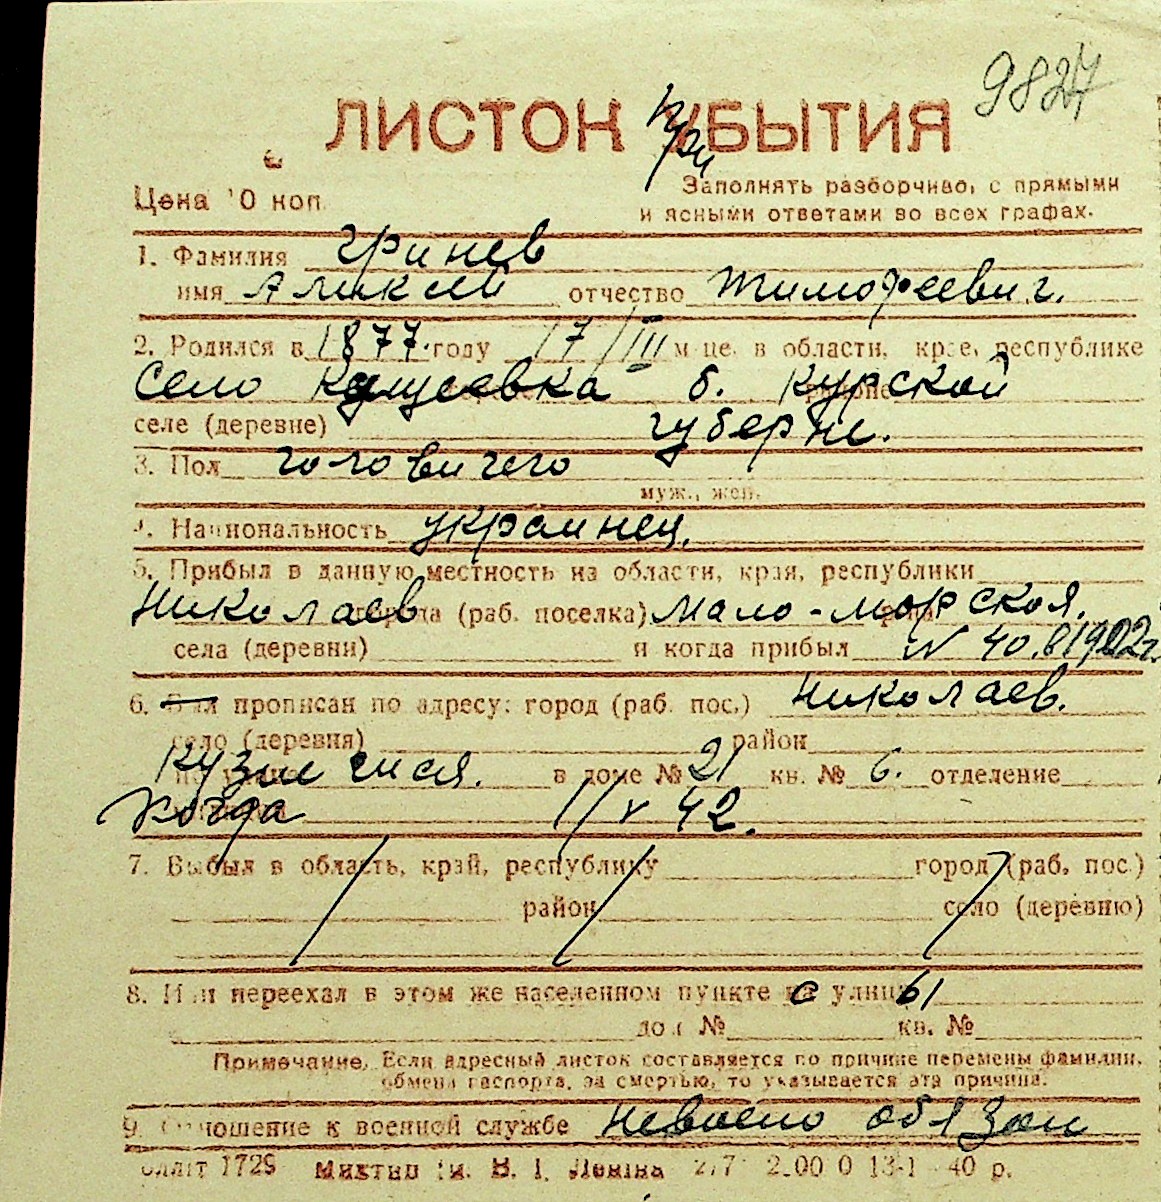 9827
ЛИСТОК УБЫТИЯ
при
Цена 10 коп.
Заполнять разборчиво, с прямыми
и ясными ответами во всех графах.
1. Фамилия Гринев
имя Аликсей отчество Тимофеевич.
2. Родился в 1877. году 17/III м-це, в области, крае, республике
село б. Курской
селе (деревне) губерне.
3. Пол головичего
муж., жен.
4. Национальность украинец.
5. Прибыл в данную местность из области, края, республики
Николаев города (раб. поселка) Мало-морская.
села (деревни) и когда прибыл
6. прописан по адресу: город (раб. пос.) Николаев.
село (деревня) район
Кузнечная. в доме № 21 кв. № 6. отделение
когда 1/V 42.
7. Выбыл в область, край, республику город (раб. пос.)
район село (деревню)
8. Или переехал в этом же населенном пункте с улицы 61
дом № кв. №
Примечание. Если адресный листок составляется по причине перемены фамилии,
обмена паспорта, за смертью, то указывается эта причина.
9. Отношение к военной службе невоено обязан
1729 В. І. Леніна 40 р.